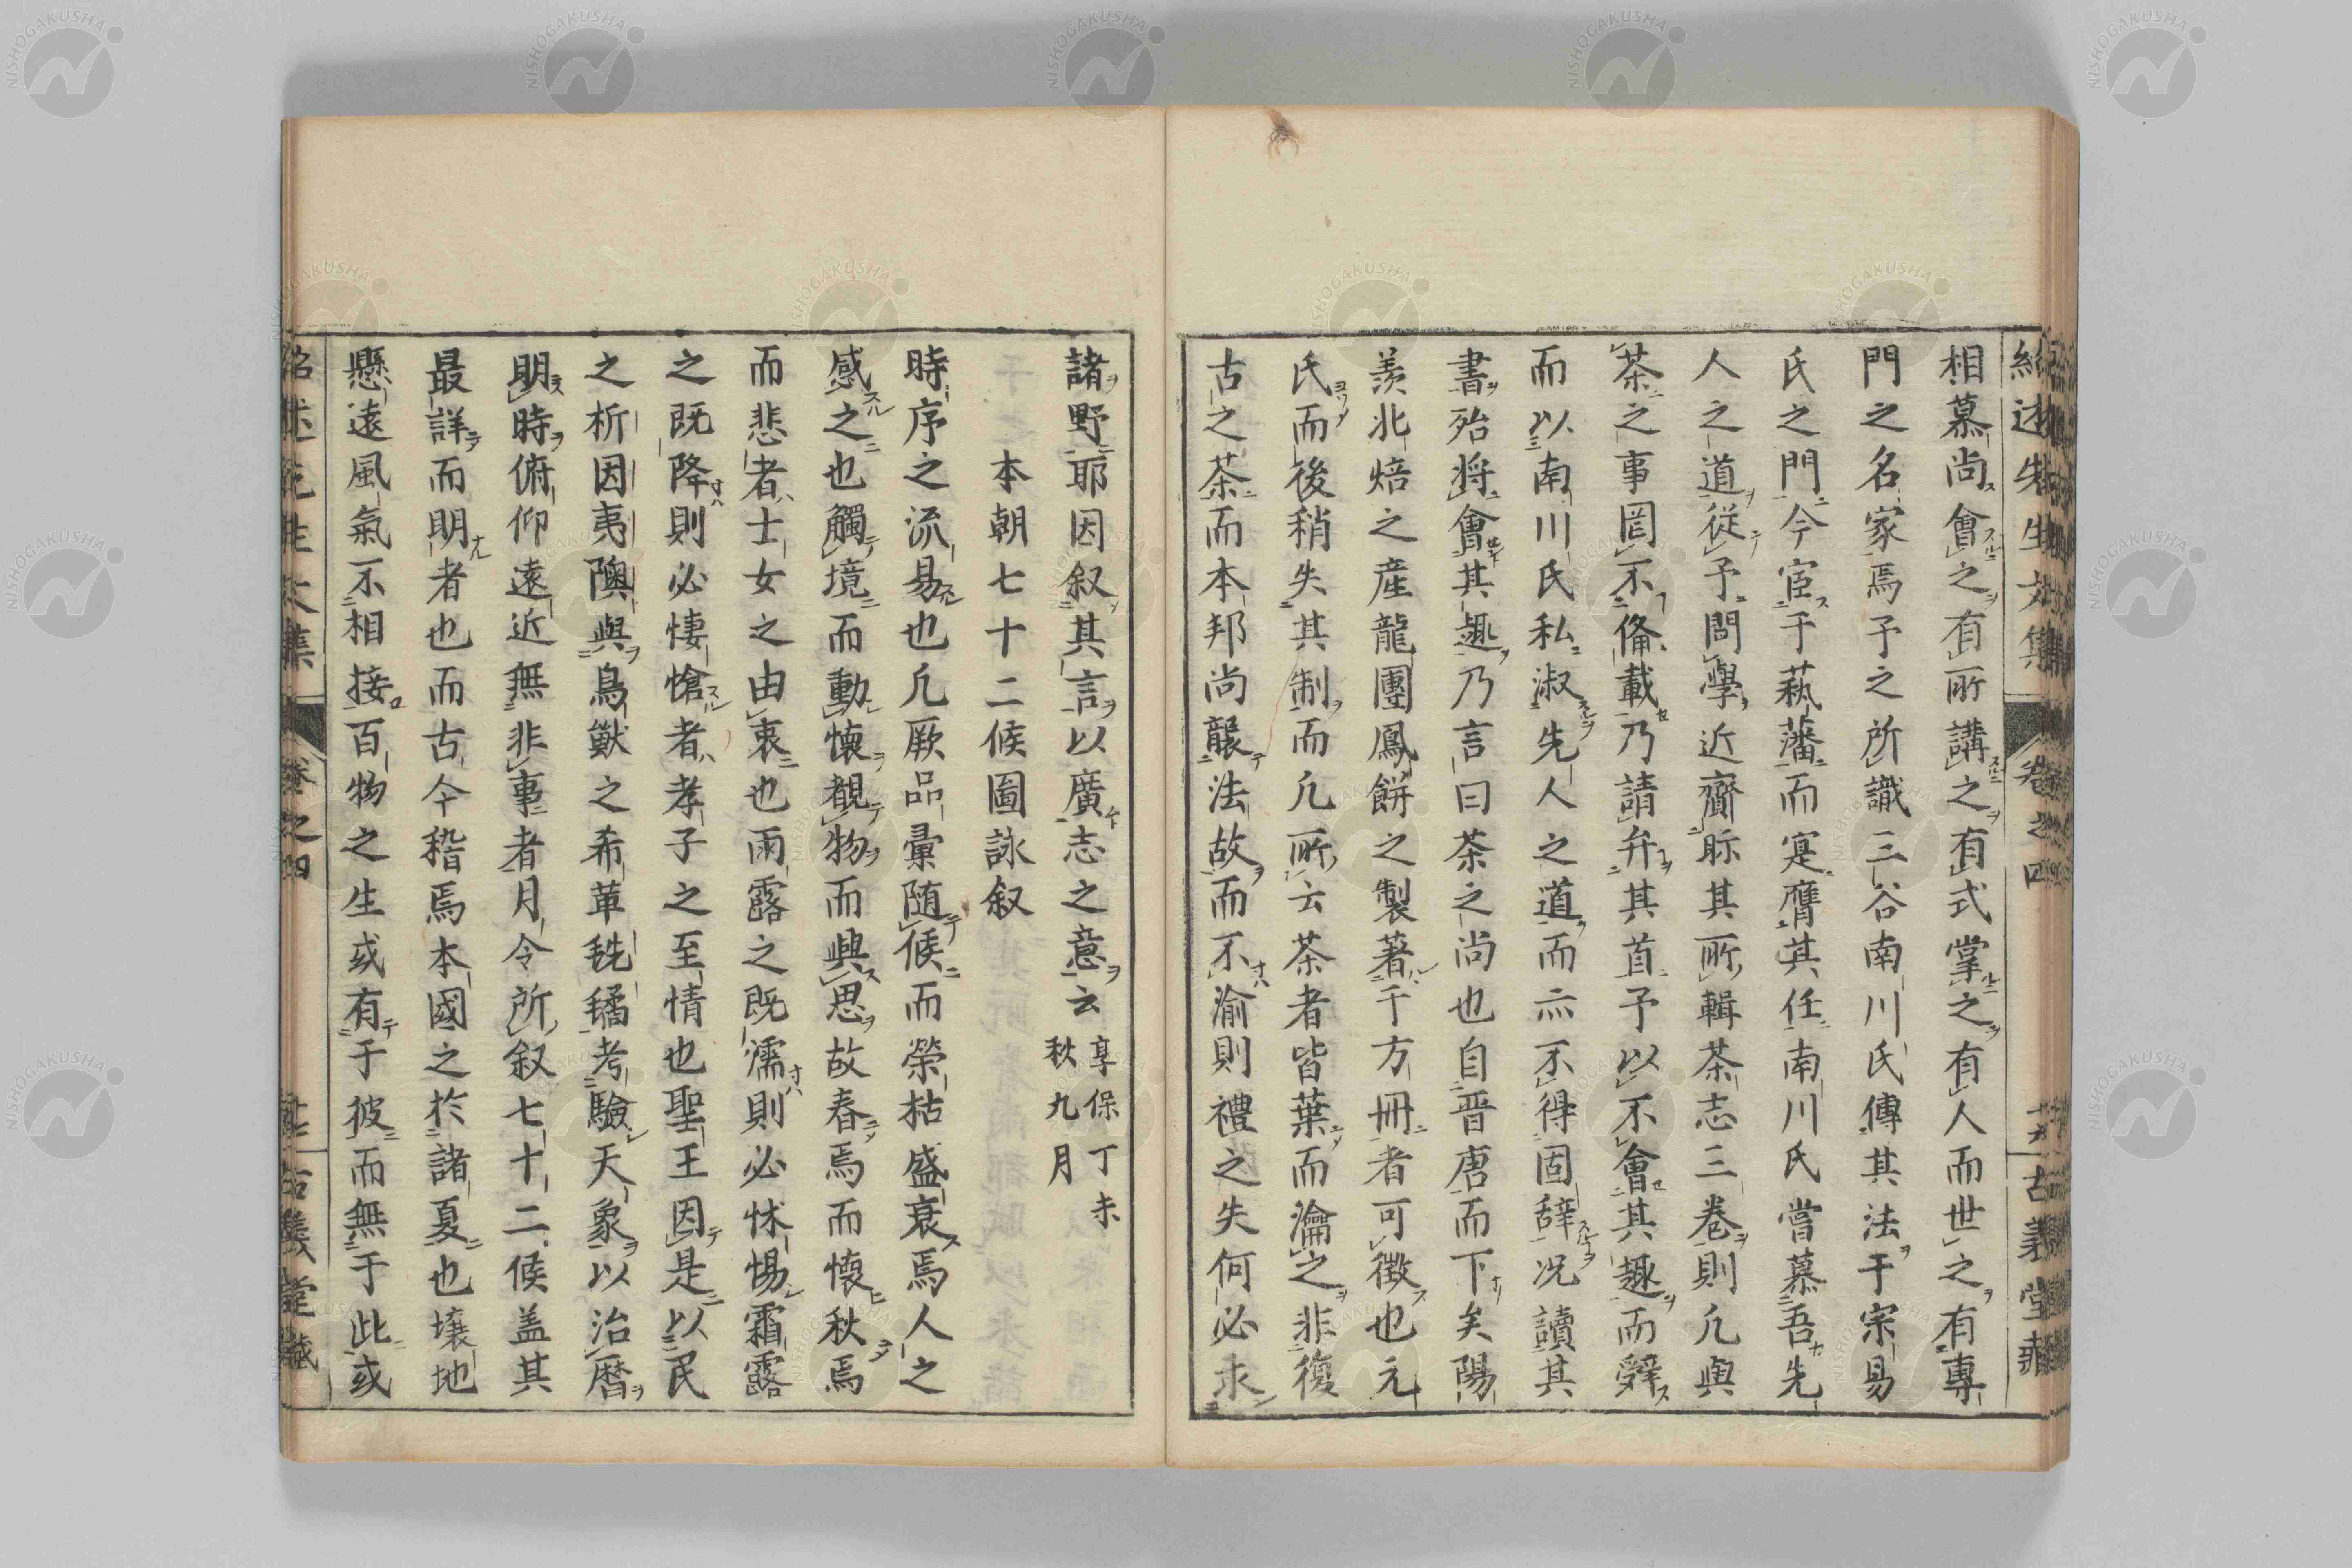 相慕尚會之有所講之有式掌之有人而世之有專
門之名家焉予之所識三谷南川氏傳其法于宗易
氏之門今宦于萩藩而寔膺其任南川氏嘗慕吾先
人之道從予問學近齎眎其所輯茶志三卷則凢與
茶之事罔不俻載乃請弁其首予以不會其趣而辤
而以南川氏私淑先人之道而亦不得固辝况讀其
書殆將會其趣乃言曰茶之尚也自晋唐而下矣陽
羨北焙之産龍團鳳餅之製著于方冊者可徴也元
氏而後稍失其制而凢所云茶者皆葉而瀹之非復
古之茶而本邦尚襲法故而不渝則禮之失何必求
諸野耶因叙其言以廣志之意云 享保丁未秋九月
本朝七十二候圖詠叙
時序之流易也凢厥品彙随候而榮枯盛衰焉人之
感之也觸境而動懷觀物而興思故春焉而懷秋焉
而悲者士女之由衷也雨露之既濡則必怵惕霜露
之既降則必悽愴者孝子之至情也聖王因是以民
之析因夷隩與鳥獣之希革毨氄考驗天象以治暦
明時俯仰遠近無非事者月令所叙七十二候盖其
最詳而明者也而古今稽焉本國之於諸夏也壌地
懸遠風氣不相接百物之生或有于彼而無于此或
紹述先生文集 卷之四 古義堂藏